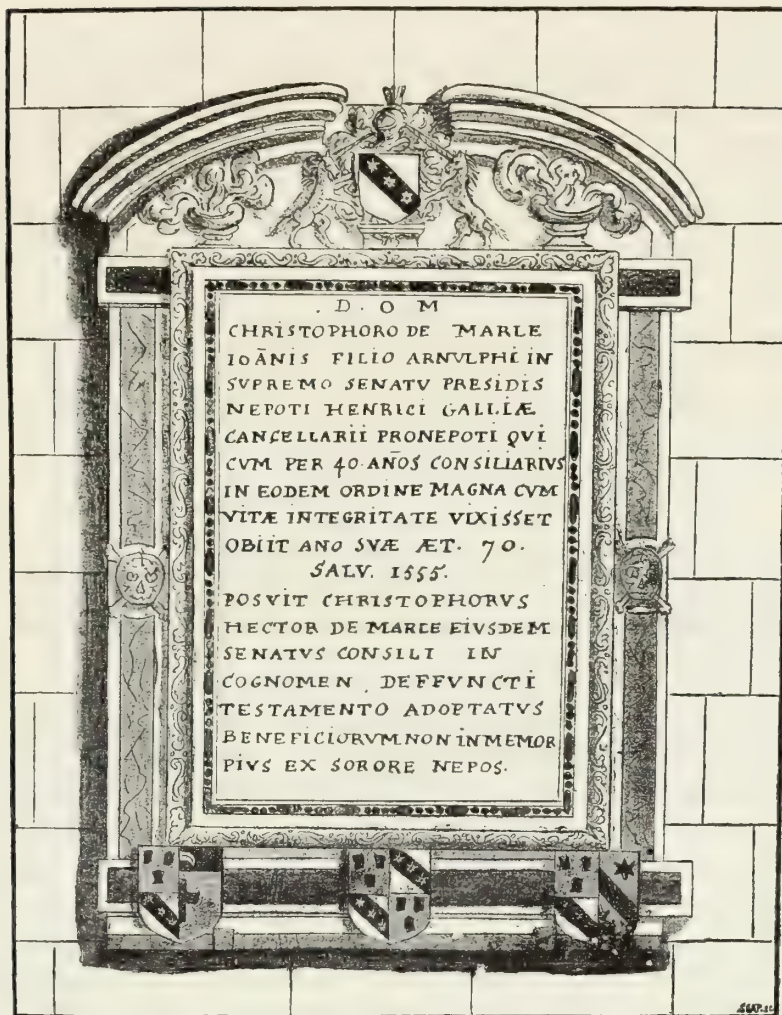 . D . O M
CHRISTOPHORO DE MARLE
IOÃNIS FILIO ARNVLPHI IN
SVPREMO SENATV PRESIDIS
NEPOTI HENRICI GALLIÆ
CANCELLARII PRONEPOTI QVI
CVM PER 40 AÑOS CONSILIARIVS
IN EODEM ORDINE MAGNA CVM
VITÆ INTEGRITATE VIXISSET
OBIIT ANO SVÆ ÆT. 70.
SALV. 1555.
POSVIT CHRISTOPHORVS
HECTOR DE MARLE EIVSDEM
SENATVS CONSILI IN
COGNOMEN DEFFVNCTI
TESTAMENTO ADOPTATVS
BENEFICIORVM NON INMEMOR
PIVS EX SORORE NEPOS.